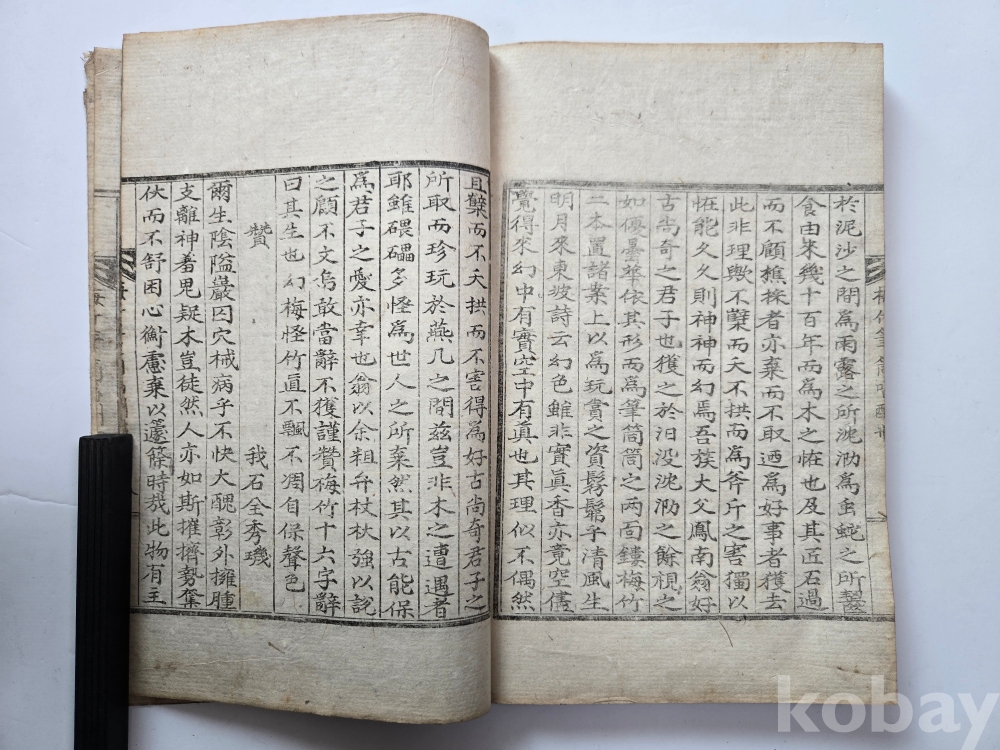 於泥沙之間爲雨露之所沈泐爲虫蛇之所齧
食由來幾十百年而爲木之恠也及其匠石過
而不顧樵採者亦棄而不取迺爲好事者獲去
此非理歟不櫱而夭不拱而爲斧斤之害獨以
恠能久久則神神而幻焉吾族大父鳳南翁好
古尙奇之君子也獲之於汨没沈泐之餘視之
如優曇華依其形而爲筆筒筒之兩面鏤梅竹
二本置諸案上以爲玩賞之資鬆鬜乎清風生
明月來東坡詩云幻色雖非實眞香亦竟空儘
覺得來幻中有實空中有眞也其理似不偶然
且櫱而不夭拱而不害得爲好古尙奇君子之
所取而珍玩於燕几之間玆豈非木之遭遇者
耶雖礧磊多怪爲世人之所棄然其以古能保
爲君子之愛亦幸也翁以余粗弁杖杖強以説
之顧不文烏敢當辭不獲謹贊梅竹十六字辭
曰其生也幻梅怪竹眞不飄不凋自保聲色
贊 我石全秀璣
爾生陰隘巖囚穴械病乎不快大醜彰外擁腫
支離神着鬼疑木豈徒然人亦如斯摧擠勢奪
伏而不舒困心衡慮棄以籧篨時哉此物有主